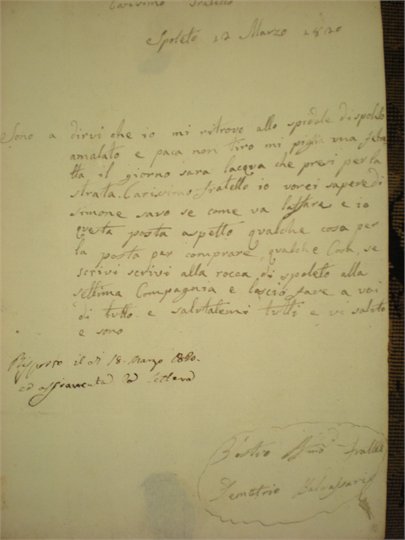 Carissimo Fratello
Spoleto 12 Marzo 1820
Sono a dirvi che io mi ritrovo allo spedale di spoleto
amalato e paca non tiro mi piglia una feb
tta il giorno sara lacqua che presi per la
strata. Carissimo fratello io vorei sapere di
simone savo se come va laffare e io
questa posta aspetto qualche cosa per
la posta per comprare qualche Cosa se
scrivi scrivi alla rocca di spoleto alla
settima Compagnia e lascio fare a voi
di tutto e salutatemi tutti e vi saluto
e sono
Risposto il di 18 Marzo 1820.
ed affrancata la lettera
Vostro Fratello
Demetrio